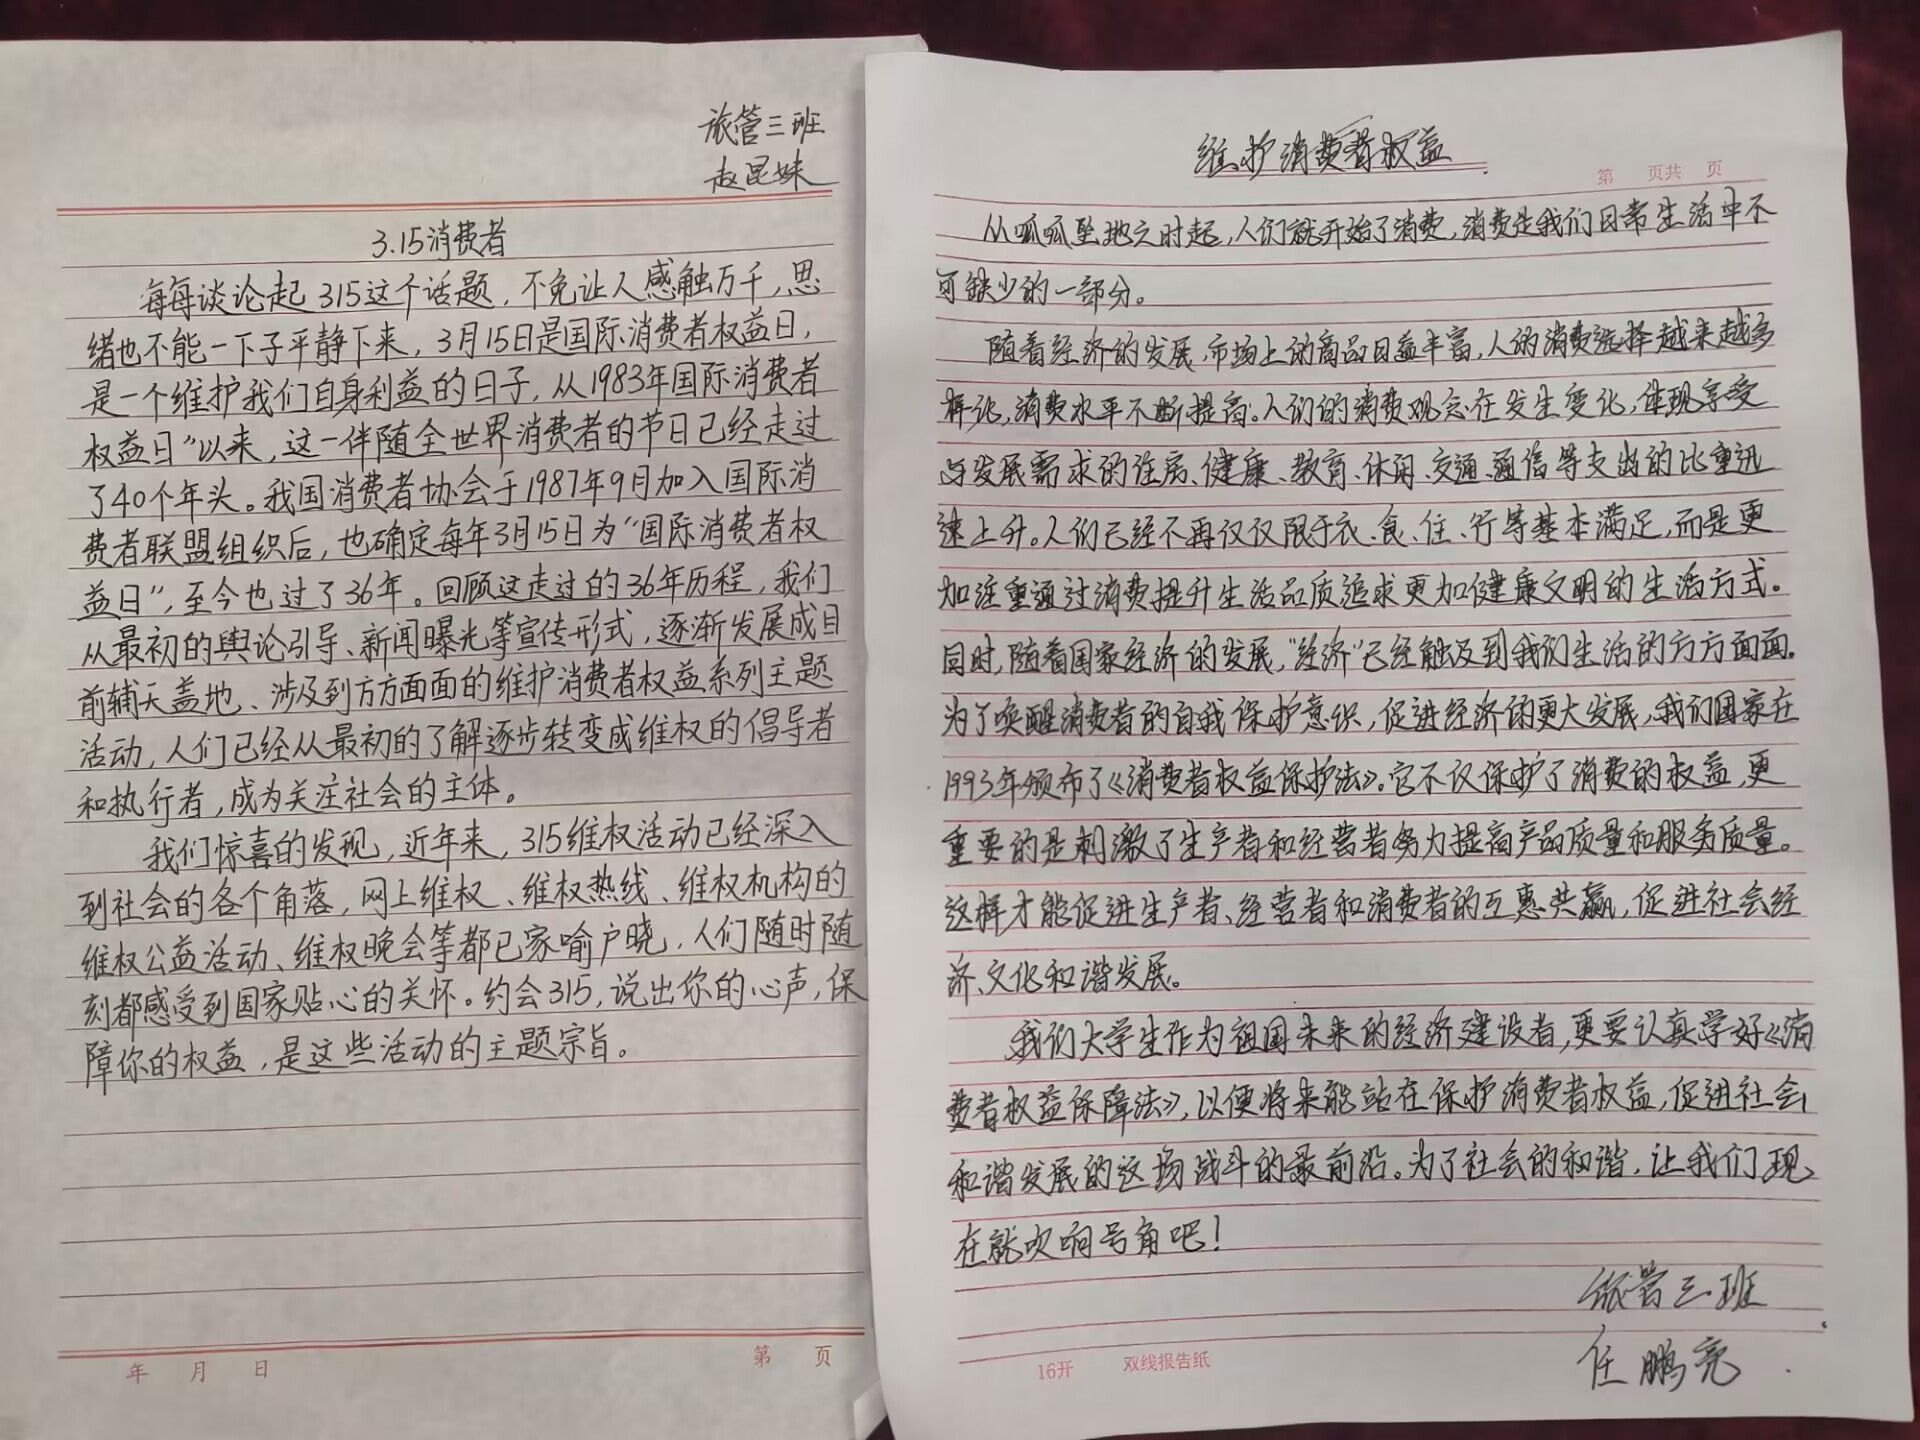 旅管三班
赵昆妹
3.15消费者
每每谈论起315这个话题，不免让人感触万千，思
绪也不能一下子平静下来，3月15日是国际消费者权益日，
是一个维护我们自身利益的日子，从1983年国际消费者
权益日”以来，这一伴随全世界消费者的节日已经走过
了40个年头。我国消费者协会于1987年9月加入国际消
费者联盟组织后，也确定每年3月15日为“国际消费者权
益日”，至今也过了36年。回顾这走过的36年历程，我们
从最初的舆论引导、新闻曝光等宣传形式，逐渐发展成目
前辅天盖地、涉及到方方面面的维护消费者权益系列主题
活动，人们已经从最初的了解逐步转变成维权的倡导者
和执行者，成为关注社会的主体。
我们惊喜的发现，近年来，315维权活动已经深入
到社会的各个角落，网上维权、维权热线、维权机构的
维权公益活动、维权晚会等都已家喻户晓，人们随时随
刻都感受到国家贴心的关怀。约会315，说出你的心声，保
障你的权益，是这些活动的主题宗旨。
年 月 日
第 页
维护消费者权益
第 页共 页
从呱呱坠地之时起，人们就开始了消费，消费是我们日常生活中不
可缺少的一部分。
随着经济的发展，市场上的商品日益丰富，人的消费选择越来越多
样化，消费水平不断提高。人们的消费观念在发生变化，体现享受
与发展需求的住房、健康、教育、休闲、交通、通信等支出的比重迅
速上升。人们已经不再仅仅限于衣、食、住、行等基本满足，而是更
加注重通过消费提升生活品质追求更加健康文明的生活方式。
同时，随着国家经济的发展，“经济”已经触及到我们生活的方方面面。
为了唤醒消费者的自我保护意识，促进经济的更大发展，我们国家在
1993年颁布了《消费者权益保护法》。它不仅保护了消费的权益，更
重要的是刺激了生产者和经营者努力提高产品质量和服务质量。
这样才能促进生产者、经营者和消费者的互惠共赢，促进社会经
济、文化和谐发展。
我们大学生作为祖国未来的经济建设者，更要认真学好《消
费者权益保障法》，以便将来能站在保护消费者权益，促进社会
和谐发展的这场战斗的最前沿。为了社会的和谐，让我们现
在就吹响号角吧！
旅管三班
任鹏亮
16开 双线报告纸